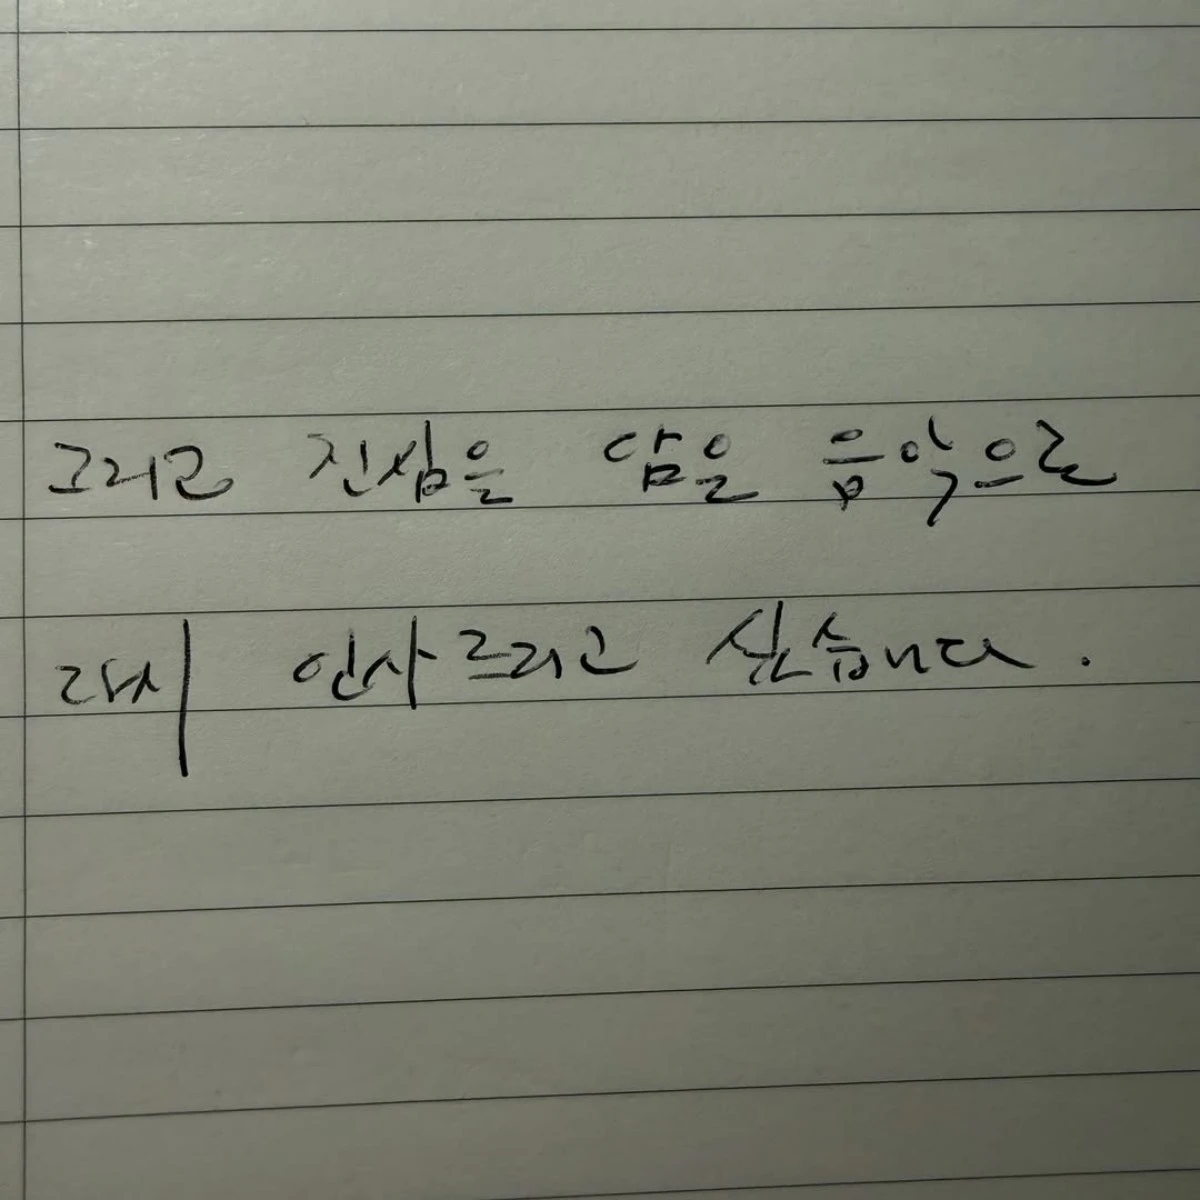 그리고 진심을 담은 음악으로
다시 인사드리고 싶습니다.